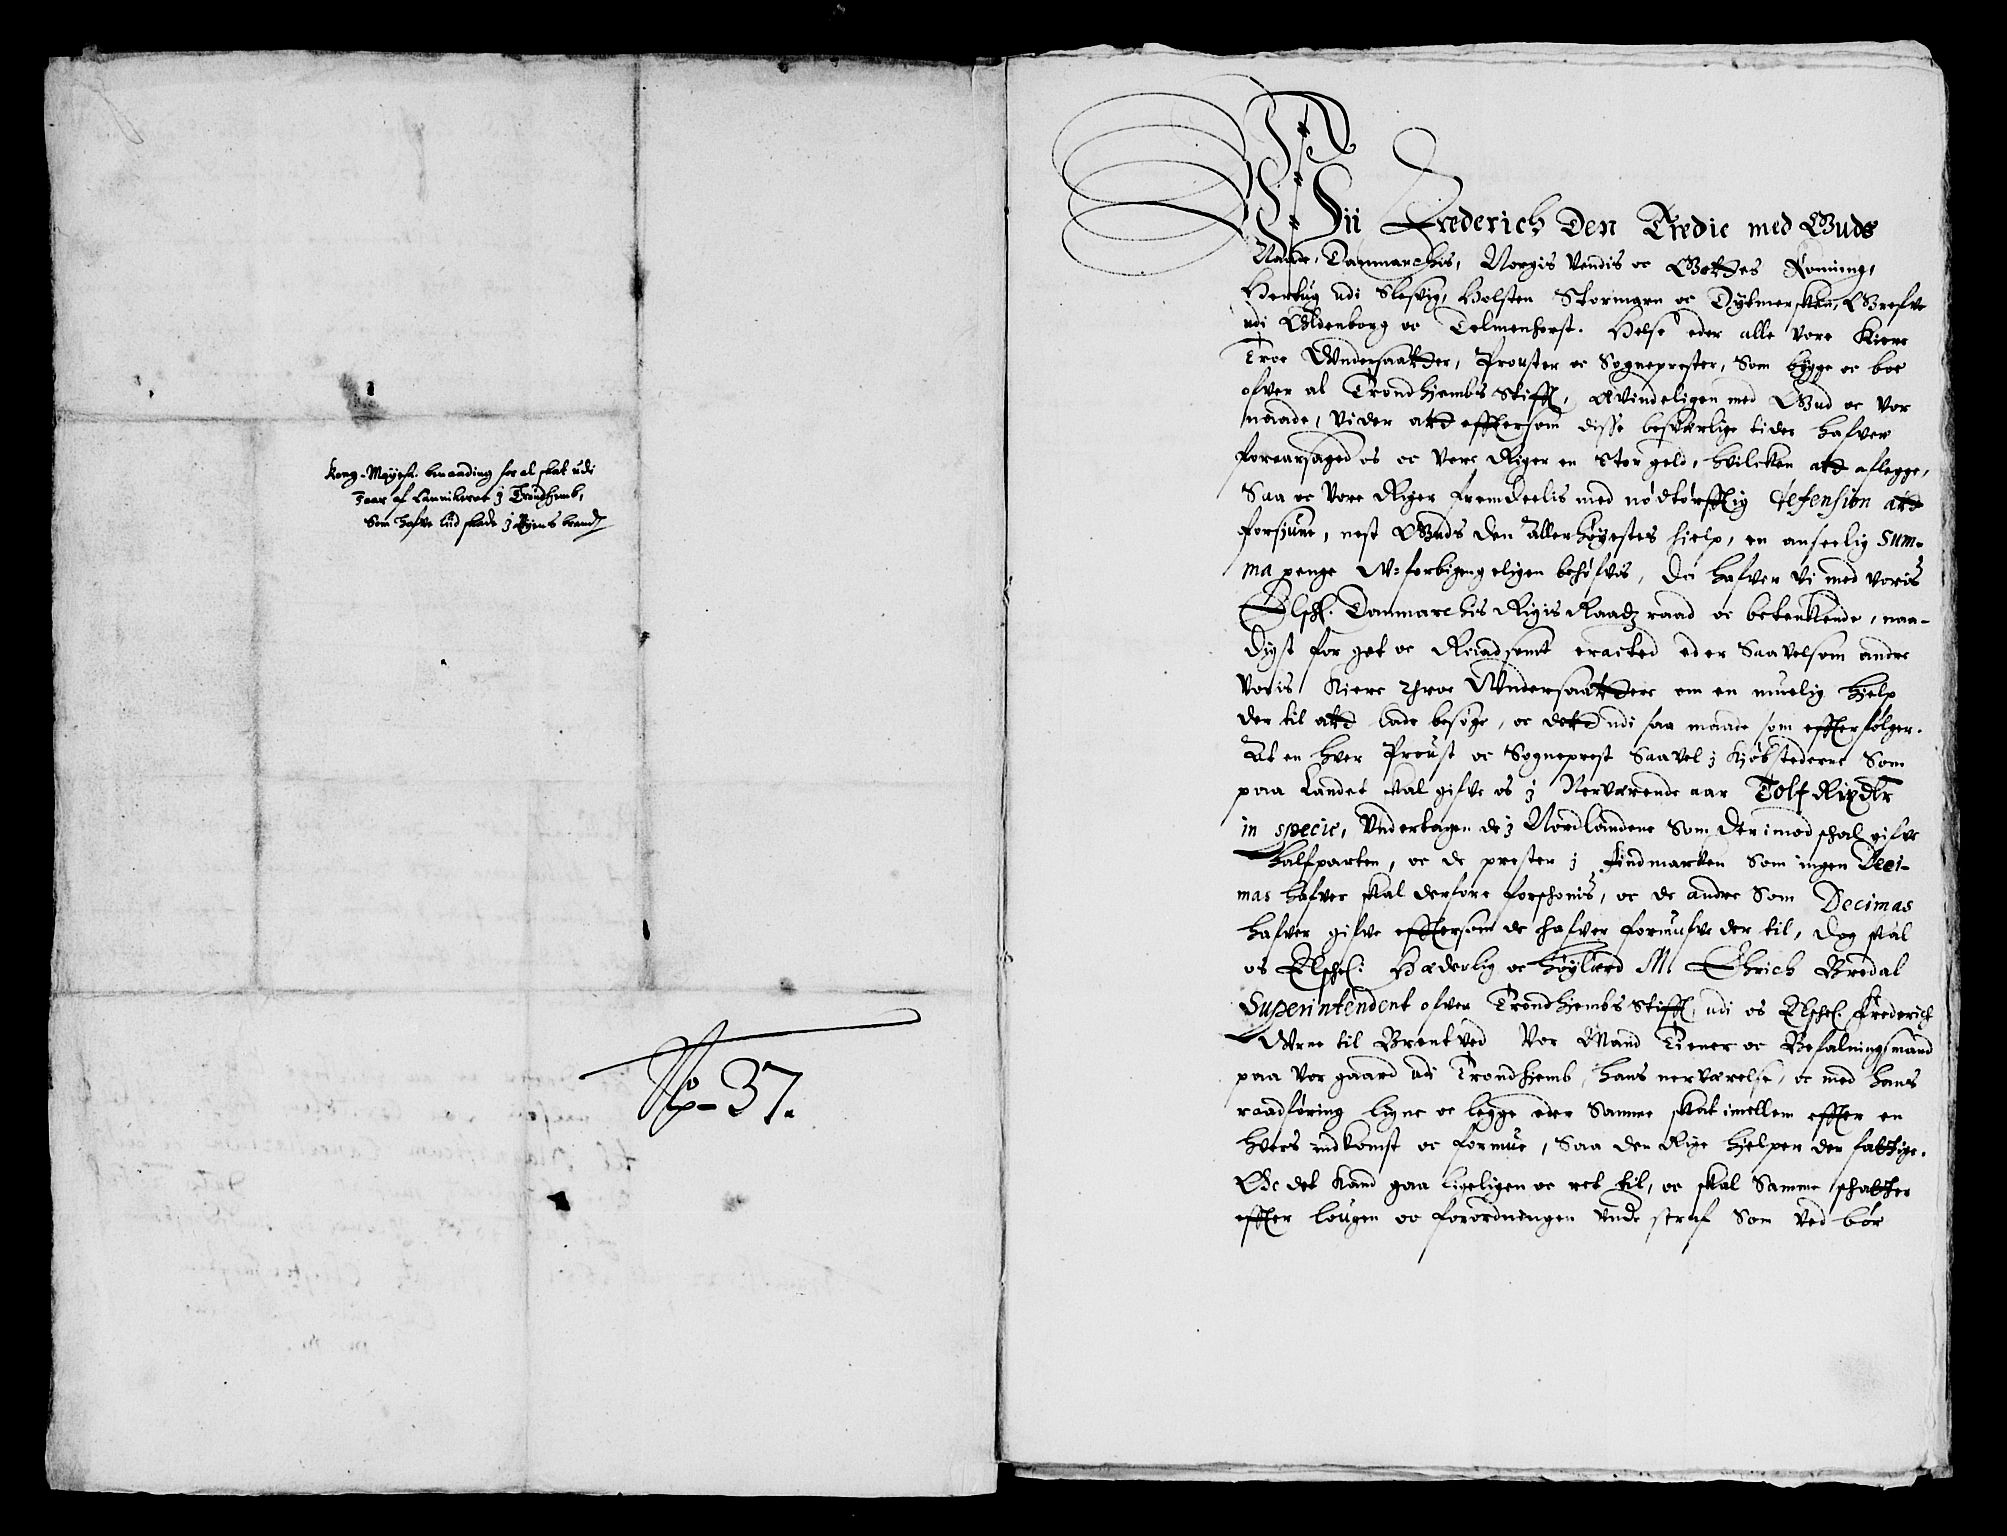 Kong: Mayest: benaading for al skat udi
3 aar af Cannikerne i Trundhiemb,
Som hafve lid skade i Byens brand
No- 37.
Wii Frederich Den Tredie med Guds
Naade, Danmarchis, Norgis Vendis oc Gottes Konning,
Hertug udi Slesvig, Holsten Stormarn oc Dytmersken, Grefve
udi Oldenborg oc Delmenhorst. Helse eder alle vore Kiere
Troe Undersaatter, Prouster oc Sogneprester, Som bygge oc boe
ofver al Trondhjembs Stifft, Evindeligen med Gud oc Vor
naade, Vider att efftersom disse besværlige tider hafver
foraarsaged os oc Vore Riger en Stor geld, hvilcken att aflegge,
Saa oc Vore Riger fremdeelis med nødtørfftig defension att
forsiune, nest Guds den Allerhøyestes hielp, en anseelig Sum-
ma penge U-forbigengeligen behøfvis, Da hafver Vi med Voris
Elskl. Danmarchis Rigis Raadz raad oc betenkende, naa-
digst for got oc Raadsomt eracted eder Saavelsom andre
Voris Kiere Throe Undersaattere om en muelig hjelp
der til att lade besøge, oc dett udi saa maade som effterfølger.
At en hver Proust oc Sogneprest Saavel i Kjøbstederne Som
paa Landet skal gifve os i Nerværende aar Tolf Rixdlr
in specie, Undertagen de i Nordlandene Som derimod schal gifve
halfparten, oc de prester i Findmarken Som ingen Deci-
mas hafver skal derfore forschonis, oc de andre Som Decimas
hafver gifve efftersom de hafver formufve der til, Dog skal
os Elschel: Hæderlig oc Høylærd M. Ehrich Bredal
Superintendent ofver Trondhjembs Stifft, udi os Elschel. Frederich
Urne til Brentved Vor Mand Tiener oc Befalningsmand
paa Vor gaard udi Trondhjemb, hans nerværelse, oc med hans
raadføring ligne oc legge eder Samme skat imellem effter en
hvers indkomst oc formue, Saa den Rige hjelper den fattige.
Oc det kand gaa ligeligen oc ret til, oc skal Samme schatter
effter lougen oc forordningen unde straf Som Ved bør